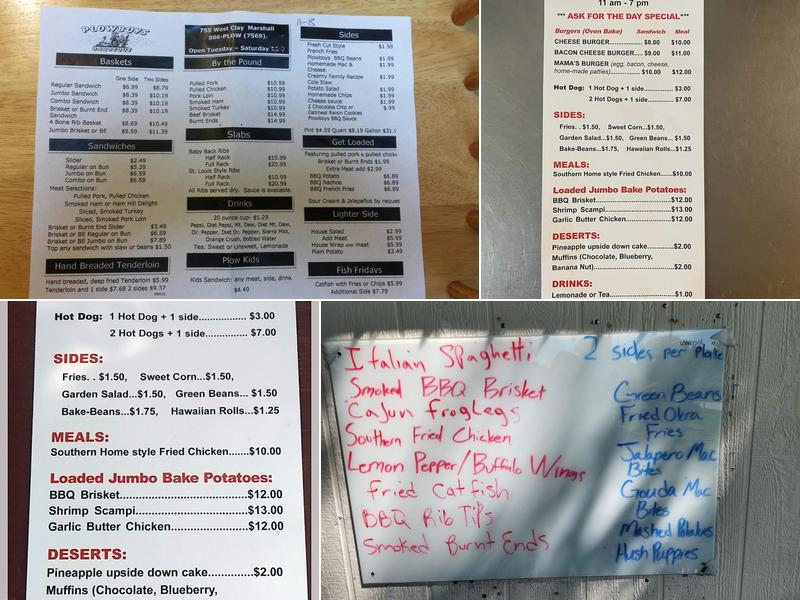 PLOWBOYS
BARBEQUE
755 West Clay Marshall
886-PLOW (7569)
Open Tuesday - Saturday
11-8
Baskets
One Side Two Sides
Regular Sandwich $6.99 $8.79
Jumbo Sandwich $8.39 $10.19
Combo Sandwich $8.39 $10.19
Brisket or Burnt End $8.39 $10.19
Sandwich
4 Bone Rib Basket $8.69 $10.49
Jumbo Brisket or BE $9.59 $11.39
Sandwiches
Slider $2.49
Regular on Bun $5.29
Jumbo on Bun $6.59
Combo on Bun $6.59
Meat Selections:
Pulled Pork, Pulled Chicken
Smoked Ham or Ham Hill Delight
Sliced, Smoked Turkey
Sliced, Smoked Pork Loin
Brisket or Burnt End Slider $3.49
Brisket or BE Regular on Bun $6.59
Brisket or BE Jumbo on Bun $7.89
Top any sandwich with slaw or beans $1.50
Hand Breaded Tenderloin
Hand breaded, deep fried Tenderloin $5.99
Tenderloin and 1 side $7.68 2 sides $9.37
By the Pound
Pulled Pork $10.99
Pulled Chicken $10.99
Pork Loin $10.99
Smoked Ham $10.99
Smoked Turkey $10.99
Beef Brisket $14.99
Burnt Ends $14.99
Slabs
Baby Back Ribs
Half Rack $10.99
Full Rack $20.99
St. Louis Style Ribs
Half Rack $10.99
Full Rack $20.99
All Ribs served dry. Sauce is available.
Drinks
20 ounce cup- $1.29
Pepsi, Diet Pepsi, Mt. Dew, Diet Mt. Dew,
Dr. Pepper, Diet Dr. Pepper, Sierra Mist,
Orange Crush, Bottled Water
Tea: Sweet or Unsweet, Lemonade
Plow Kids
Kids Sandwich: any meat, side, drink
$4.49
Sides
Fresh Cut Style $1.99
French Fries
Plowboys BBQ Beans $1.99
Homemade Mac & $1.99
Cheese
Creamy Family Recipe $1.99
Cole Slaw
Potato Salad $1.99
Homemade Chips $1.99
Cheese sauce $1.99
2 Chocolate Chip or $.99
Oatmeal Raisin Cookies
Plowboys BBQ Sauce
Pint $4.59 Quart $8.19 Gallon $31.
Get Loaded
Featuring pulled pork & pulled chick
Brisket or Burnt Ends $1.99
Extra Meat add $2.99
BBQ Potato $6.89
BBQ Nachos $6.89
BBQ French Fries $6.89
Sour Cream & Jalapeños by reques
Lighter Side
House Salad $2.99
Add Meat $5.99
House Wrap with meat $5.99
Plain Potato $3.49
Fish Fridays
Catfish with Fries or Chips $5.99
Additional Side $7.79
11 am - 7 pm
*** ASK FOR THE DAY SPECIAL***
Burgers (Oven Bake) Sandwich Meal
CHEESE BURGER..... $8.00 $10.00
BACON CHEESE BURGER... $9.00 $11.00
MAMA'S BURGER (egg, bacon, cheese,
home-made patties)......... $10.00 $12.00
Hot Dog: 1 Hot Dog + 1 side................ $3.00
2 Hot Dogs + 1 side............. $7.00
SIDES:
Fries. . $1.50, Sweet Corn...$1.50,
Garden Salad...$1.50, Green Beans... $1.50
Bake-Beans...$1.75, Hawaiian Rolls...$1.25
MEALS:
Southern Home style Fried Chicken......$10.00
Loaded Jumbo Bake Potatoes:
BBQ Brisket..............................$12.00
Shrimp Scampi.........................$13.00
Garlic Butter Chicken................$12.00
DESERTS:
Pineapple upside down cake...........$2.00
Muffins (Chocolate, Blueberry,
Banana Nut)..............................$2.00
DRINKS:
Lemonade or Tea.......................$1.00
Hot Dog: 1 Hot Dog + 1 side................ $3.00
2 Hot Dogs + 1 side............. $7.00
SIDES:
Fries. . $1.50, Sweet Corn...$1.50,
Garden Salad...$1.50, Green Beans... $1.50
Bake-Beans...$1.75, Hawaiian Rolls...$1.25
MEALS:
Southern Home style Fried Chicken......$10.00
Loaded Jumbo Bake Potatoes:
BBQ Brisket..............................$12.00
Shrimp Scampi.........................$13.00
Garlic Butter Chicken................$12.00
DESERTS:
Pineapple upside down cake...........$2.00
Muffins (Chocolate, Blueberry,
Italian Spaghetti
Smoked BBQ Brisket
Cajun froglegs
Southern Fried Chicken
Lemon Pepper/Buffalo Wings
fried catfish
BBQ Rib Tips
Smoked Burnt Ends
2 sides per plate
Green Beans
Fried Okra
Fries
Jalapero Mac
Bites
Gouda Mac
Bites
Mashed Potatoes
Hush Puppies